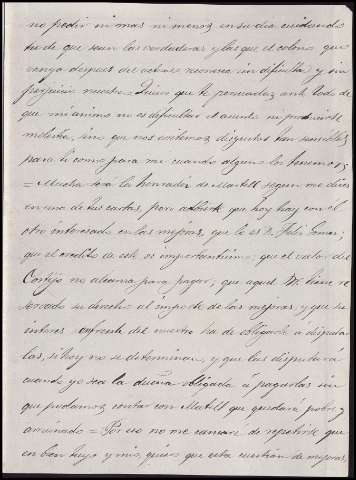 no pedir ni mas ni menos en su dia cuidando
tu de que sean las verdaderas y las que el colono que
venga despues del actual reconozca sin dificultad y sin
perjuicio nuestro. Quiero que te persuadas ante todo de
que mi animo no es dificultar el asunto ni producirte
molestia, sino que nos evitemos disgustos tan sensibles
para ti como para mi cuando alguno los tenemos;
= Mucha será la honradez de Martell segun me dices
en una de tus cartas, pero advierte que hoy hay con él
otro interesado en las mejoras, que lo es D. Felix Gomez;
que el credito de este es importantisimo; que el valor del
Cortijo no alcanza para pagar, que aquel Sr. tiene re
servado su derecho al importe de las mejoras y que su
interes enfrente del nuestro ha de obligarle a disputar
las, si hoy no se determinan, y que las disputara
cuando yo sea la dueña obligada á pagarlas sin
que podamos contar con Martell que quedará pobre y
arruinado = Por eso no me cansaré de repetirte que
en bien tuyo y mio, quiero que esta cuestion de mejoras,